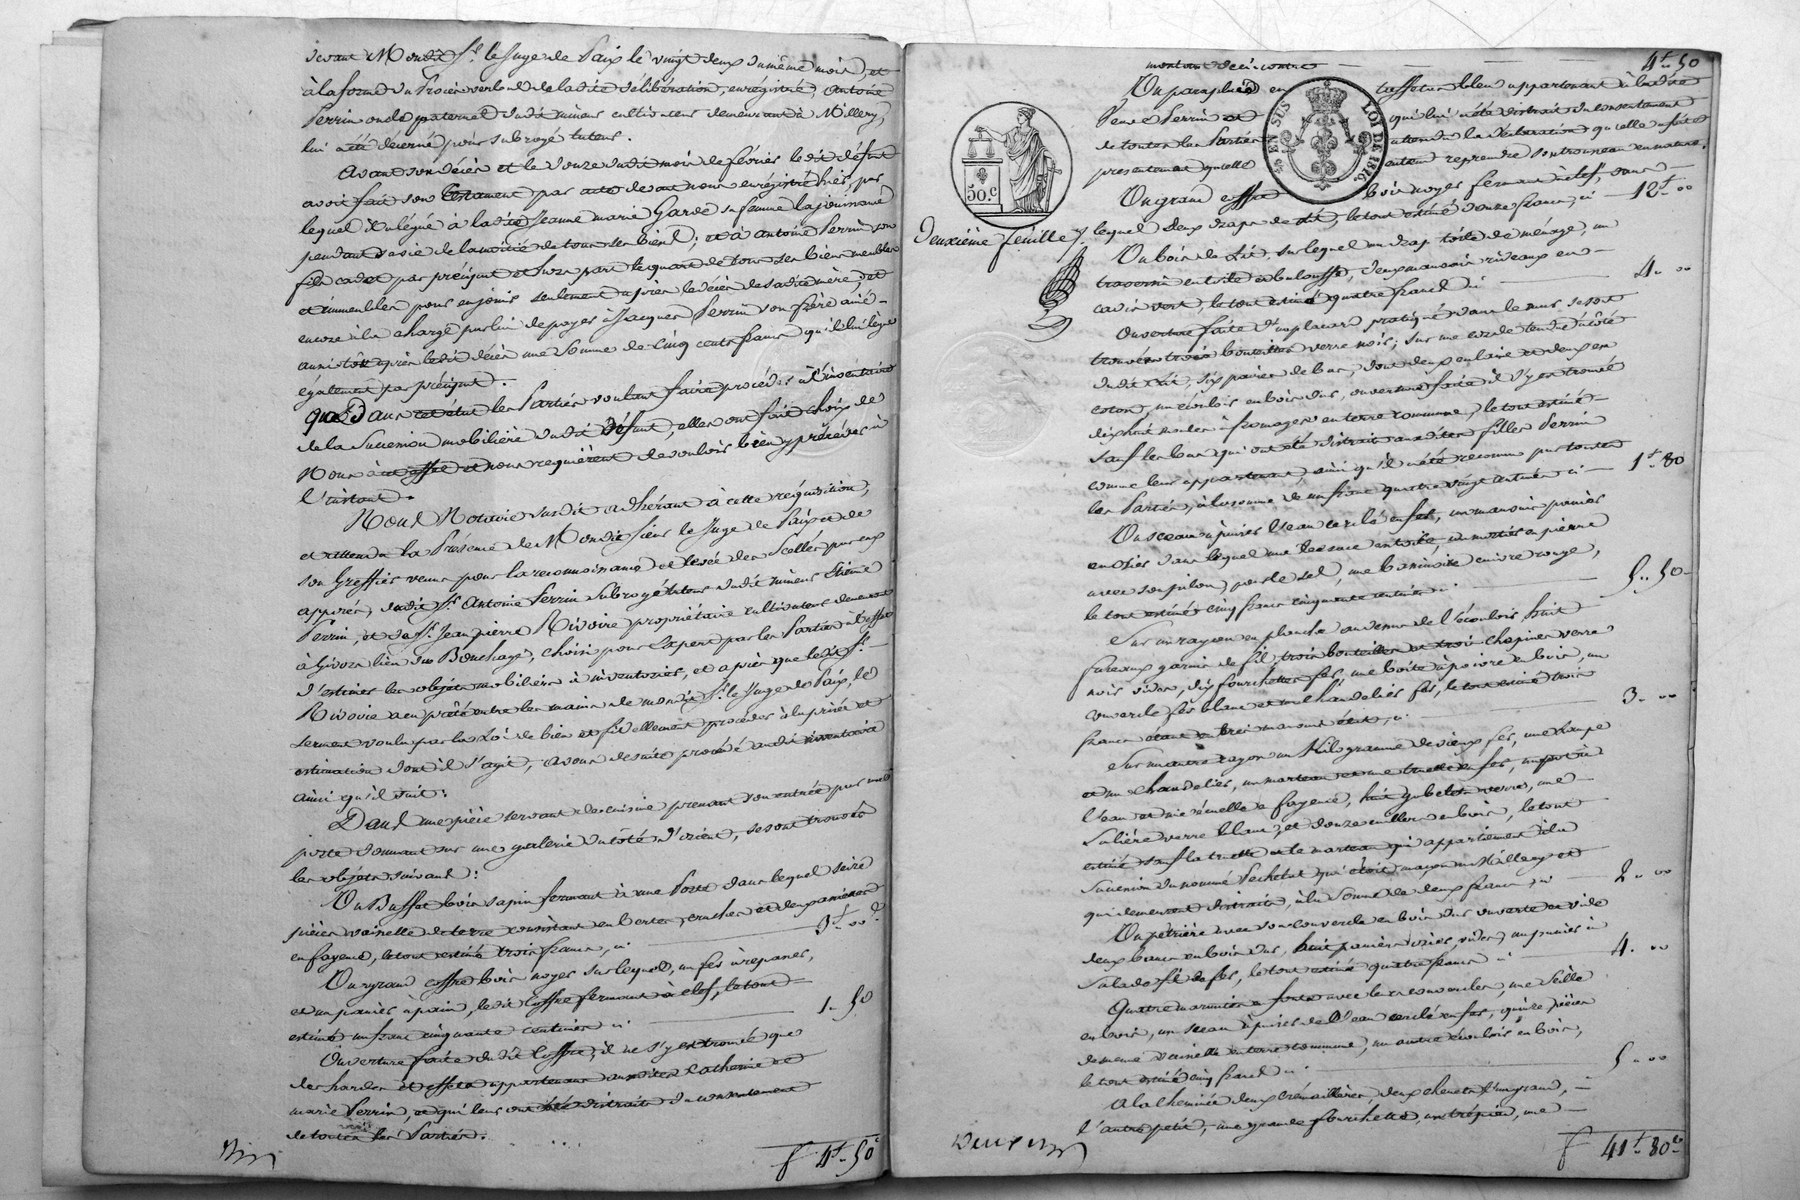 devant Mondit Sr. le Juge de Paix le vingt deux du même mois, et
à la forme du Procès verbal de la dite délibération, enregistré, Antoine
Perrin oncle paternel dudit mineur cultivateur demeurant à Millery,
lui a été décerné pour subrogé tuteur.
Avant son décès et le douze dudit mois de février ledit défunt
avoit fait son testament par acte devant nous enregistré, par
lequel il a légué à ladite Jeanne marie Garde sa femme la jouissance
pendant sa vie de la moitié de tous ses biens; et à Antoine Perrin son
fils cadet par préciput et hors part le quart de tous ses biens meubles
et immeubles pour en jouir seulement après le décès de sadite mère, et
encore à la charge par lui de payer à Jacques Perrin son frère ainé
aussitôt après ledit décès une somme de cinq cents francs qu'il lui lègue
également par préciput.
Dans cet état les Parties voulant faire procéder à l'inventaire
de la Succession mobilière dudit défunt, elles ont fait choix de
Nous à cet effet et nous requièrent de vouloir bien y procéder à
l'instant.
Nous Notaire susdit adhérant à cette réquisition,
et attendu la Présence de Mondit Sieur le Juge de Paix et de
son Greffier venus pour la reconnoissance et levée des Scellés par eux
apposés, dudit Sr. Antoine Perrin Subrogé tuteur dudit mineur Etienne
Perrin, et de Sr. Jean pierre Rivoire propriétaire cultivateur demeurant
à Givors lieu du Bouchage, choisi pour Expert par les Parties à l'effet
d'estimer les objets mobiliers à inventorier, et après que ledit Sr.
Rivoire a eu prêté entre les mains de mondit Sr. le Juge de Paix, le
serment voulu par la Loi de bien et fidellement procéder à la prisée et
estimation dont il s'agit, avons de suite procédé audit inventaire
ainsi qu'il suit:
Dans une pièce servant de cuisine prenant son entrée par une
porte donnant sur une galerie du côté d'orient, se sont trouvés
les objets suivants:
Un Buffet bois sapin fermant à une Porte dans lequel seize
pièces vaisselle de terre consistant en bertes, cruches et deux
en fayence, le tout estimé trois francs, ci 3f. 00c
Un grand coffre bois noyer sur lequel, un fer à repasser,
et un panier à pain, ledit Coffre fermant à clef, le tout
estimé un franc cinquante centimes ci 1. 50
Ouverture faite dudit Coffre, il ne s'y est trouvé que
des hardes et effets appartenant auxdites Catherine et
marie Perrin, et qui leur ont été distraits du consentement
de toutes les Parties.
f 4f. 50c
montant de ci-contre 4f. 50
Un paraplui en taffetas bleu appartenant à ladite
Veuve Perrin et qui lui a été distrait du consentement
de toutes les Parties attendu la déclaration qu'elle a faite
présentement qu'elle entend reprendre son trousseau en nature.
Un grand coffre bois noyer fermant à clef, dans
lequel deux draps de lit, le tout estimé douze francs, ci 12f. 00
Deuxième feuille
Un bois de Lit, sur lequel un drap toile de ménage, un
traversin en toile et ballouffe, deux mauvais rideaux en
cadis vert, le tout estimé quatre francs ci 4. 00
Ouverture faite d'un placard pratiqué dans le mur se sont
trouvés trois bouteilles verre noir; sur une corde tendue à côté
dudit Lit, six paires de bas, dont deux en laine et deux en
coton, un écouloir en bois dur, ouverture faite il s'y est trouvé
dix huit moules à fromages en terre commune, le tout estimé
sauf les bas qui ont été distraits auxdites filles Perrin
comme leur appartenant, ainsi qu'il a été reconnu par toutes
les Parties, à la somme de un franc quatre vingt centimes ci 1f. 80
Un sceau à puiser l'eau cerclé en fer, un mauvais panier
en osier dans lequel une en toile, un mortier en pierre
avec son pilon, pour le sel, une bassinoire cuivre rouge,
le tout estimé cinq francs cinquante centimes ci 5. 50
Sur un rayon en planche au dessus de l'écouloir, huit
fuseaux garnis de fil, trois bouteilles et trois chopines verre
noir vides, dix fourchettes fer, une boîte à poivre en bois, un
couvercle fer blanc et un chandelier fer, le tout estimé trois
francs étant en très mauvais état, ci 3. 00
Sur un autre rayon un Kilogramme de vieux fer, une lampe
et un Chandelier, un marteau et une truelle en fer, un pot à
l'eau et une écuelle en fayence, huit gobelets verre, une
salière verre blanc, et douze cuillers en bois, le tout
estimé sauf la truelle et le marteau qui appartiennent à la
Succession du nommé Pechetat qui étoit maçon à Millery et
qui demeurent distraits, à la Somme de deux francs, ci 2. 00
Un pétrière avec son couvercle en bois dur ouverte et vide
deux bancs en bois dur, huit paniers osier, vides, un panier à
Salade fil de fer, le tout estimé quatre francs ci 4. 00
Quatre marmites en fonte avec leurs couvercles, une Seille
en bois, un sceau à puiser de l'eau cerclé en fer, quinze pièces
de menue vaisselle en terre commune, un autre écouloir en bois,
le tout estimé cinq francs ci 5. 00
A la cheminée deux crémaillères, deux chenets l'un grand,
l'autre petit, une grande fourchette, un trépied, une
f 41f. 80c
50.c
EN SUS
LOI DE 1816.